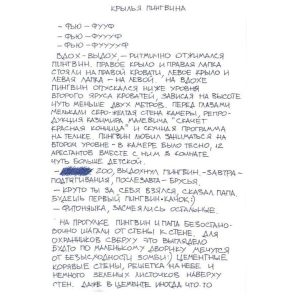 КРЫЛЬЯ ПИНГВИНА
- ФЬЮ - ФУУФ
- ФЬЮ - ФУУУФ
- ФЬЮ - ФУУУУФ
ВДОХ - ВЫДОХ - РИТМИЧНО ОТЖИМАЛСЯ
ПИНГВИН. ПРАВОЕ КРЫЛО И ПРАВАЯ ЛАПКА
СТОЯЛИ НА ПРАВОЙ КРОВАТИ, ЛЕВОЕ КРЫЛО И
ЛЕВАЯ ЛАПКА - НА ЛЕВОЙ. НА ВДОХЕ
ПИНГВИН ОПУСКАЛСЯ НИЖЕ УРОВНЯ
ВТОРОГО ЯРУСА КРОВАТЕЙ, ЗАВИСАЯ НА ВЫСОТЕ
ЧУТЬ МЕНЬШЕ ДВУХ МЕТРОВ. ПЕРЕД ГЛАЗАМИ
МЕЛЬКАЛИ СЕРО-ЖЕЛТАЯ СТЕНА КАМЕРЫ, РЕПРО-
ДУКЦИЯ КАЗИМИРА МАЛЕВИЧА "СКАЧЕТ
КРАСНАЯ КОННИЦА" И СКУЧНАЯ ПРОГРАММА
НА ТЕЛИКЕ. ПИНГВИН ЛЮБИЛ ЗАНИМАТЬСЯ НА
ВТОРОМ УРОВНЕ - В КАМЕРЕ БЫЛО ТЕСНО, 12
АРЕСТАНТОВ ВМЕСТЕ С НИМ В КОМНАТЕ
ЧУТЬ БОЛЬШЕ ДЕТСКОЙ.
- 200, ВЫДОХНУЛ ПИНГВИН, - ЗАВТРА -
ПОДТЯГИВАНИЯ, ПОСЛЕЗАВТРА - БРУСЬЯ
- КРУТО ТЫ ЗА СЕБЯ ВЗЯЛСЯ, СКАЗАЛ ПАПА,
БУДЕШЬ ПЕРВЫЙ ПИНГВИН-КАЧОК :)
- ФИТОНЯШКА, ЗАСМЕЯЛИСЬ ОСТАЛЬНЫЕ.
НА ПРОГУЛКЕ ПИНГВИН И ПАПА БЕЗОСТАНО-
ВОЧНО ШАГАЛИ ОТ СТЕНЫ К СТЕНЕ. ДЛЯ
ОХРАННИКОВ СВЕРХУ ЭТО ВЫГЛЯДЕЛО
БУДТО ПО МАЛЕНЬКОМУ ДВОРИКУ МЕЧУТСЯ
ОТ БЕЗЫСХОДНОСТИ ЗОМБИ :) ЦЕМЕНТНЫЕ
КОРЯВЫЕ СТЕНЫ, РЕШЕТКА НА НЕБЕ И
НЕМНОГО ЗЕЛЕНЫХ ЛИСТОЧКОВ НАВЕРХУ
СТЕН. ДАЖЕ В ЦЕМЕНТЕ ИНОГДА ЧТО-ТО